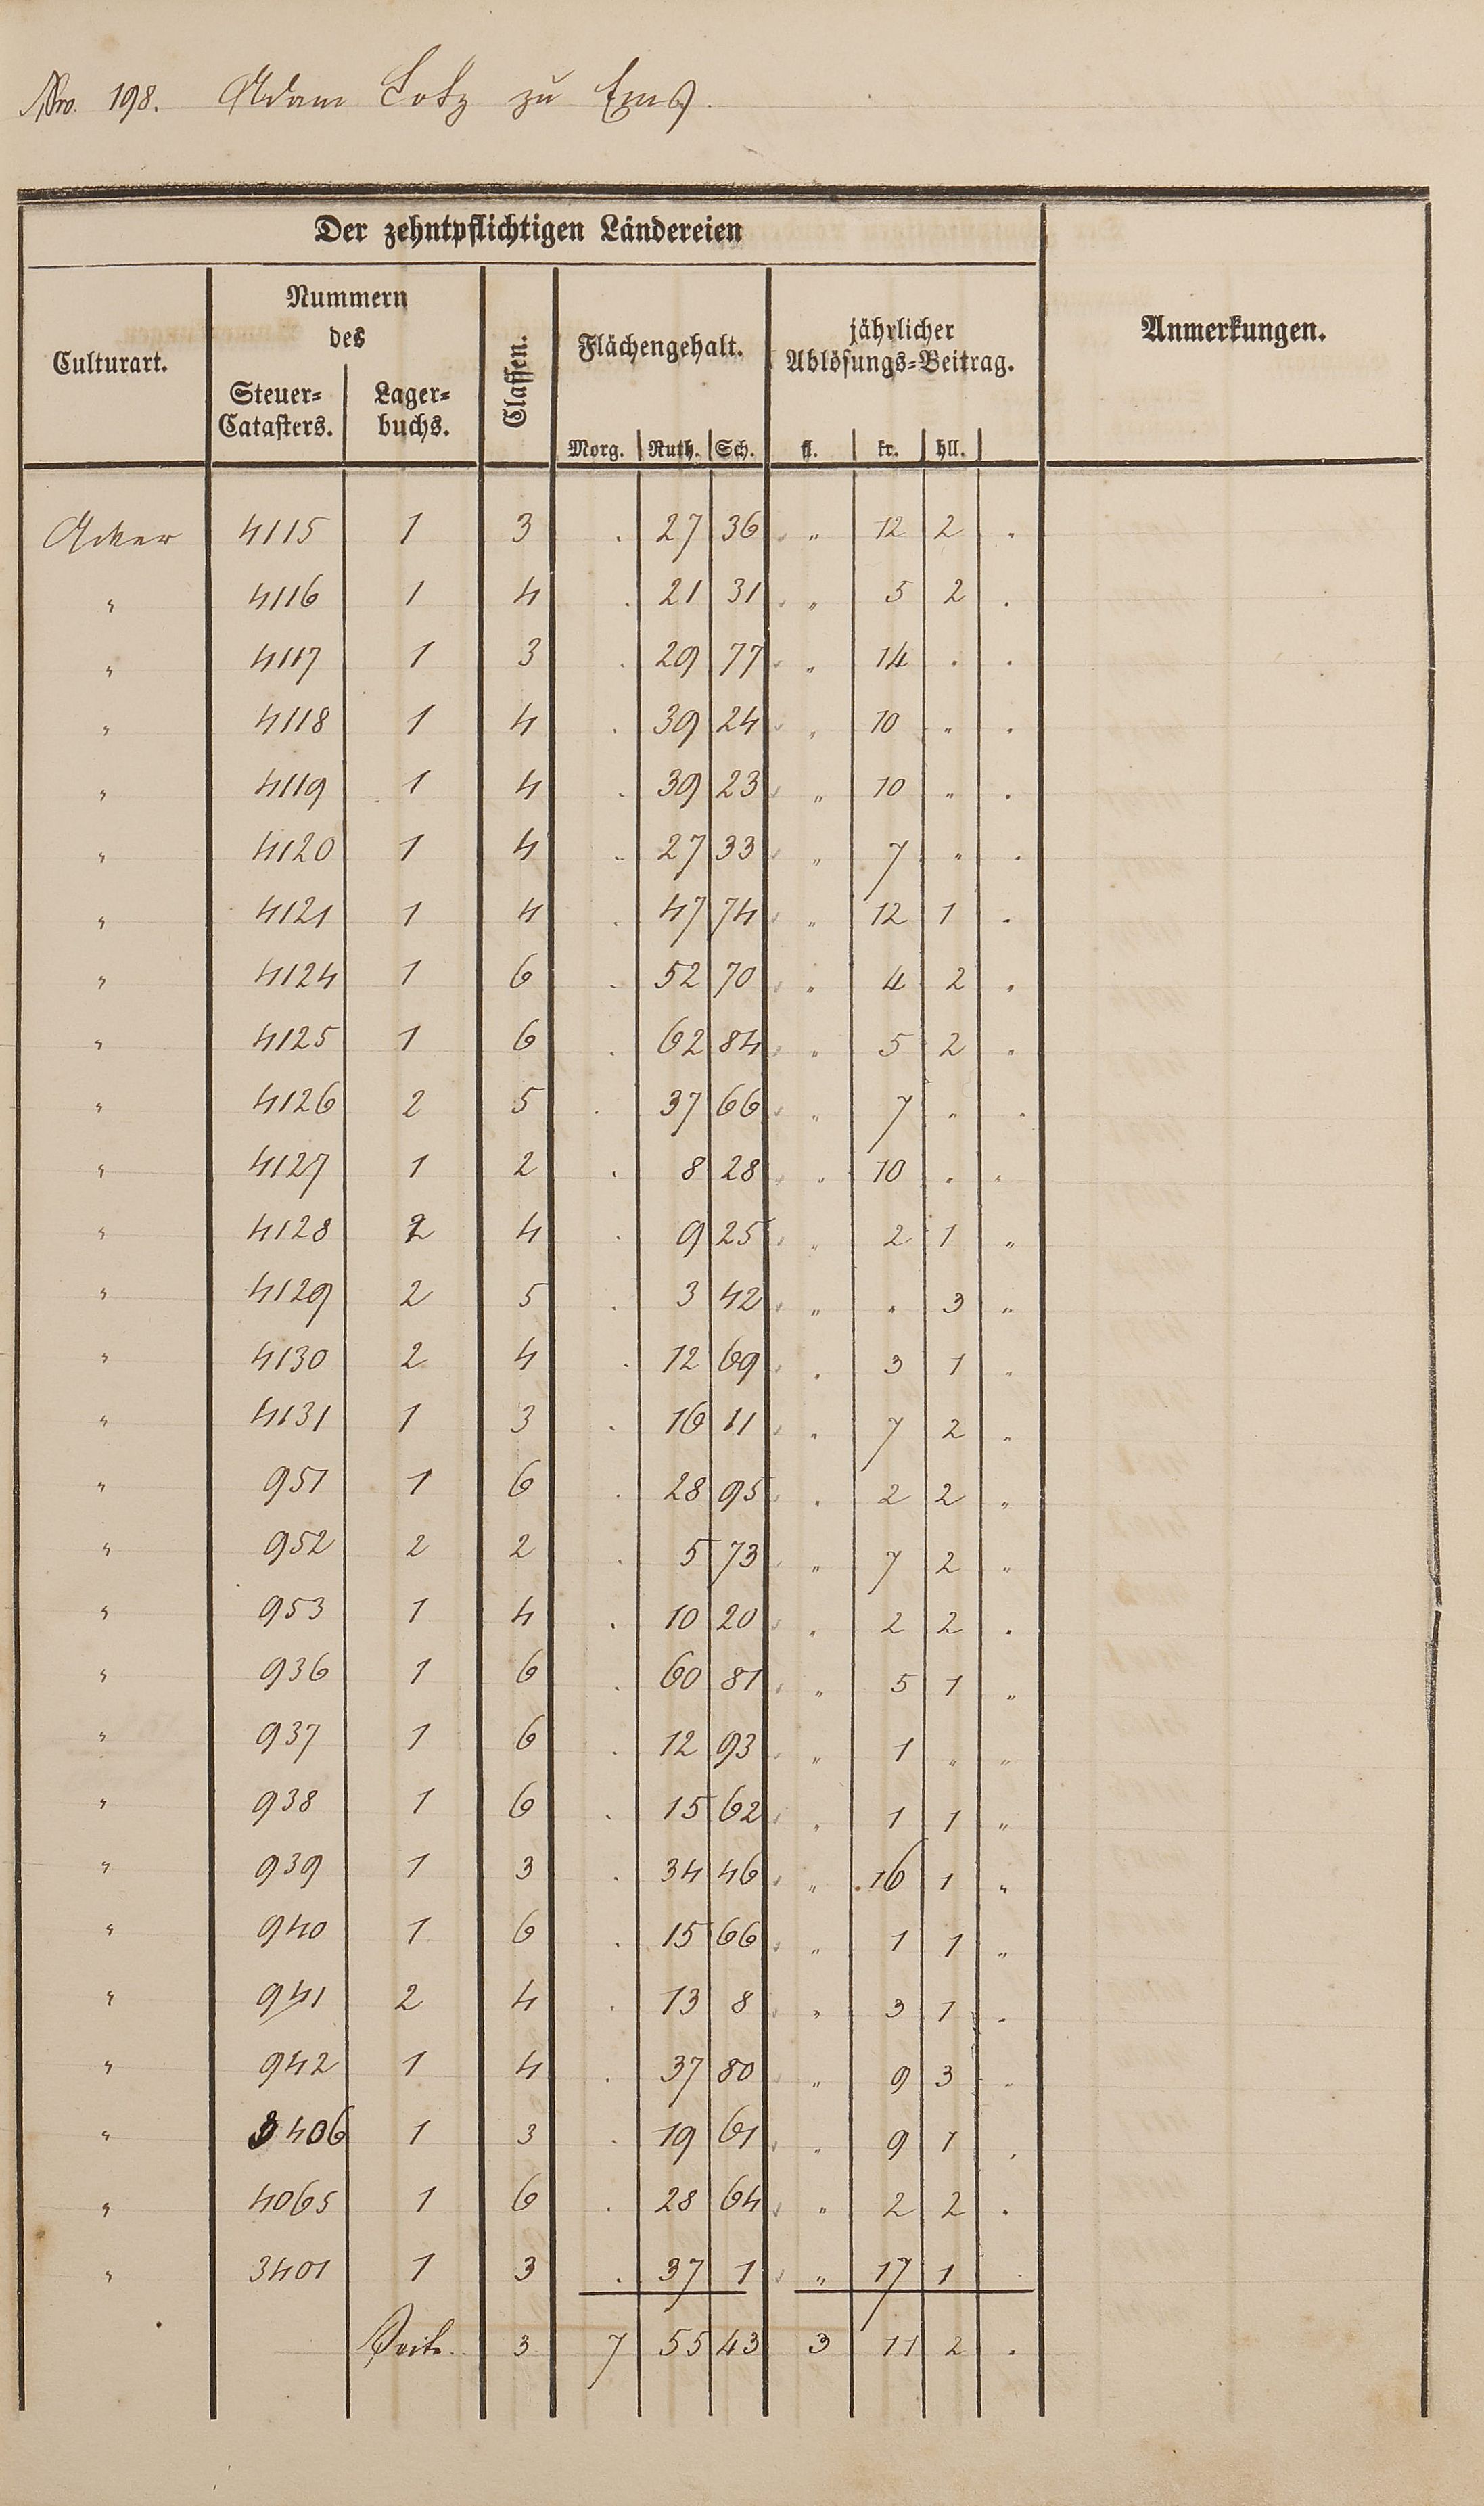 Nro. 198. Adam Lotz zu Ems.
Der zehntpflichtigen Ländereien
Anmerkungen.
Culturart.
Nummern
des
Steuer-
Catasters.
Lager-
buchs.
Classen.
Flächengehalt.
jährlicher
Ablösungs-Beitrag.
Morg. Ruth. Sch. fl. kr. hll.
Acker 4115 1 3 . 27 36 „ 12 2 .
„ 4116 1 4 . 21 31 „ 5 2 .
„ 4117 1 3 . 29 77 „ 14 . .
„ 4118 1 4 . 39 24 „ 10 „ .
„ 4119 1 4 . 39 23 „ 10 „ .
„ 4120 1 4 . 27 33 „ 7 „ .
„ 4121 1 4 . 47 74 „ 12 1 .
„ 4124 1 6 . 52 70 „ 4 2 .
„ 4125 1 6 . 62 84 „ 5 2 .
„ 4126 2 5 . 37 66 „ 7 „ .
„ 4127 1 2 . 8 28 „ 10 . „
„ 4128 2 4 . 9 25 „ 2 1 „
„ 4129 2 5 . 3 42 „ . 3 „
„ 4130 2 4 . 12 69 . 3 1 .
„ 4131 1 3 . 16 11 „ 7 2 .
„ 951 1 6 . 28 95 . 2 2 „
„ 952 2 2 . 5 73 „ 7 2 „
„ 953 1 4 . 10 20 „ 2 2 .
„ 936 1 6 . 60 81 „ 5 1 „
„ 937 1 6 . 12 93 „ 1 „ „
„ 938 1 6 . 15 62 „ 1 1 „
„ 939 1 3 . 34 46 „ 16 1 „
„ 940 1 6 . 15 66 „ 1 1 „
„ 941 2 4 . 13 8 „ 3 1 .
„ 942 1 4 . 37 80 „ 9 3 .
„ 3406 1 3 . 19 61 „ 9 1 .
„ 4065 1 6 . 28 64 „ 2 2 .
„ 3401 1 3 . 37 1 „ 17 1 .
Seite. 3 7 55 43 3 11 2 .